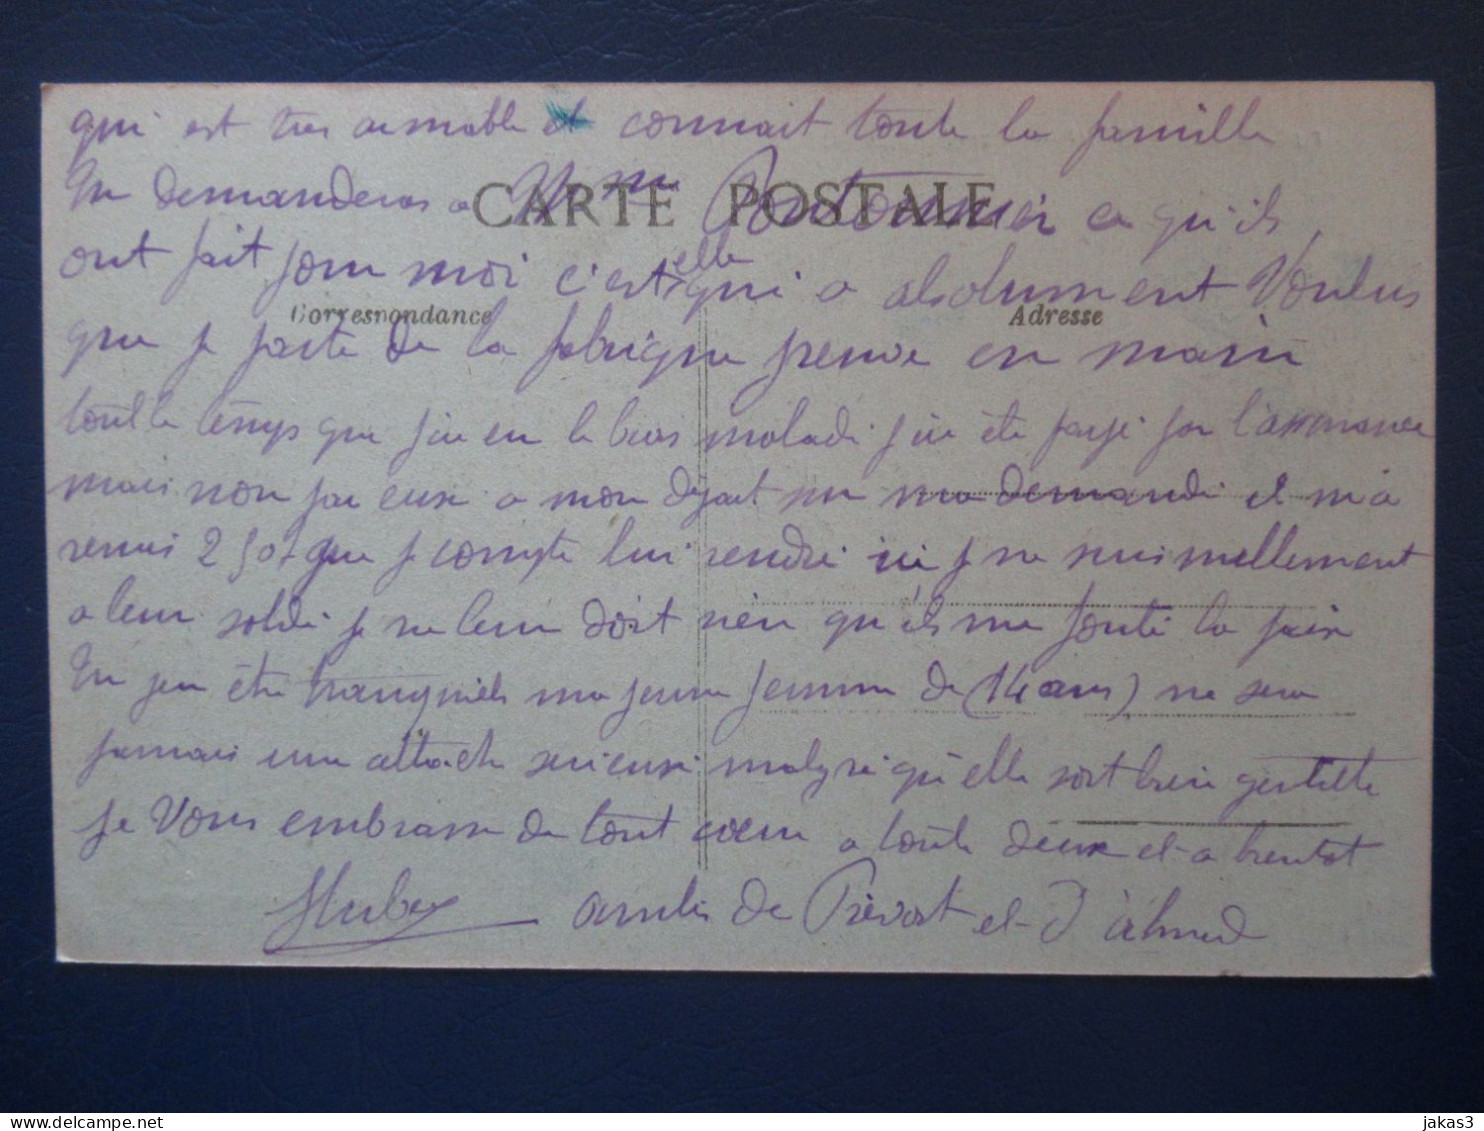 qui est tres aimable et connait toute la famille
CARTE POSTALE
Tu demanderas a Mme Pontonnier ce qu'ils
ont fait pour moi c'est elle qui a absolument Voulus
Correspondance
Adresse
que je parte de la fabrique
en main
tout le temps que j'ai eu le bras malade j'ai été payé par l'assurance
mais non par eux a mon depart
ma demandé il m'a
remis 250f que je compte lui rendre ici je ne suis nullement
a leur solde je ne leur doit rien qu'ils me foute la paix
Tu peu être tranquille ma jeune femme de (14 ans) ne sera
jamais une attache serieuse malgré qu'elle soit bien gentille
je Vous embrasse de tout coeur a toute deux et a bientot
Hubert
amities de Prévost et d'ahmed
jakas3